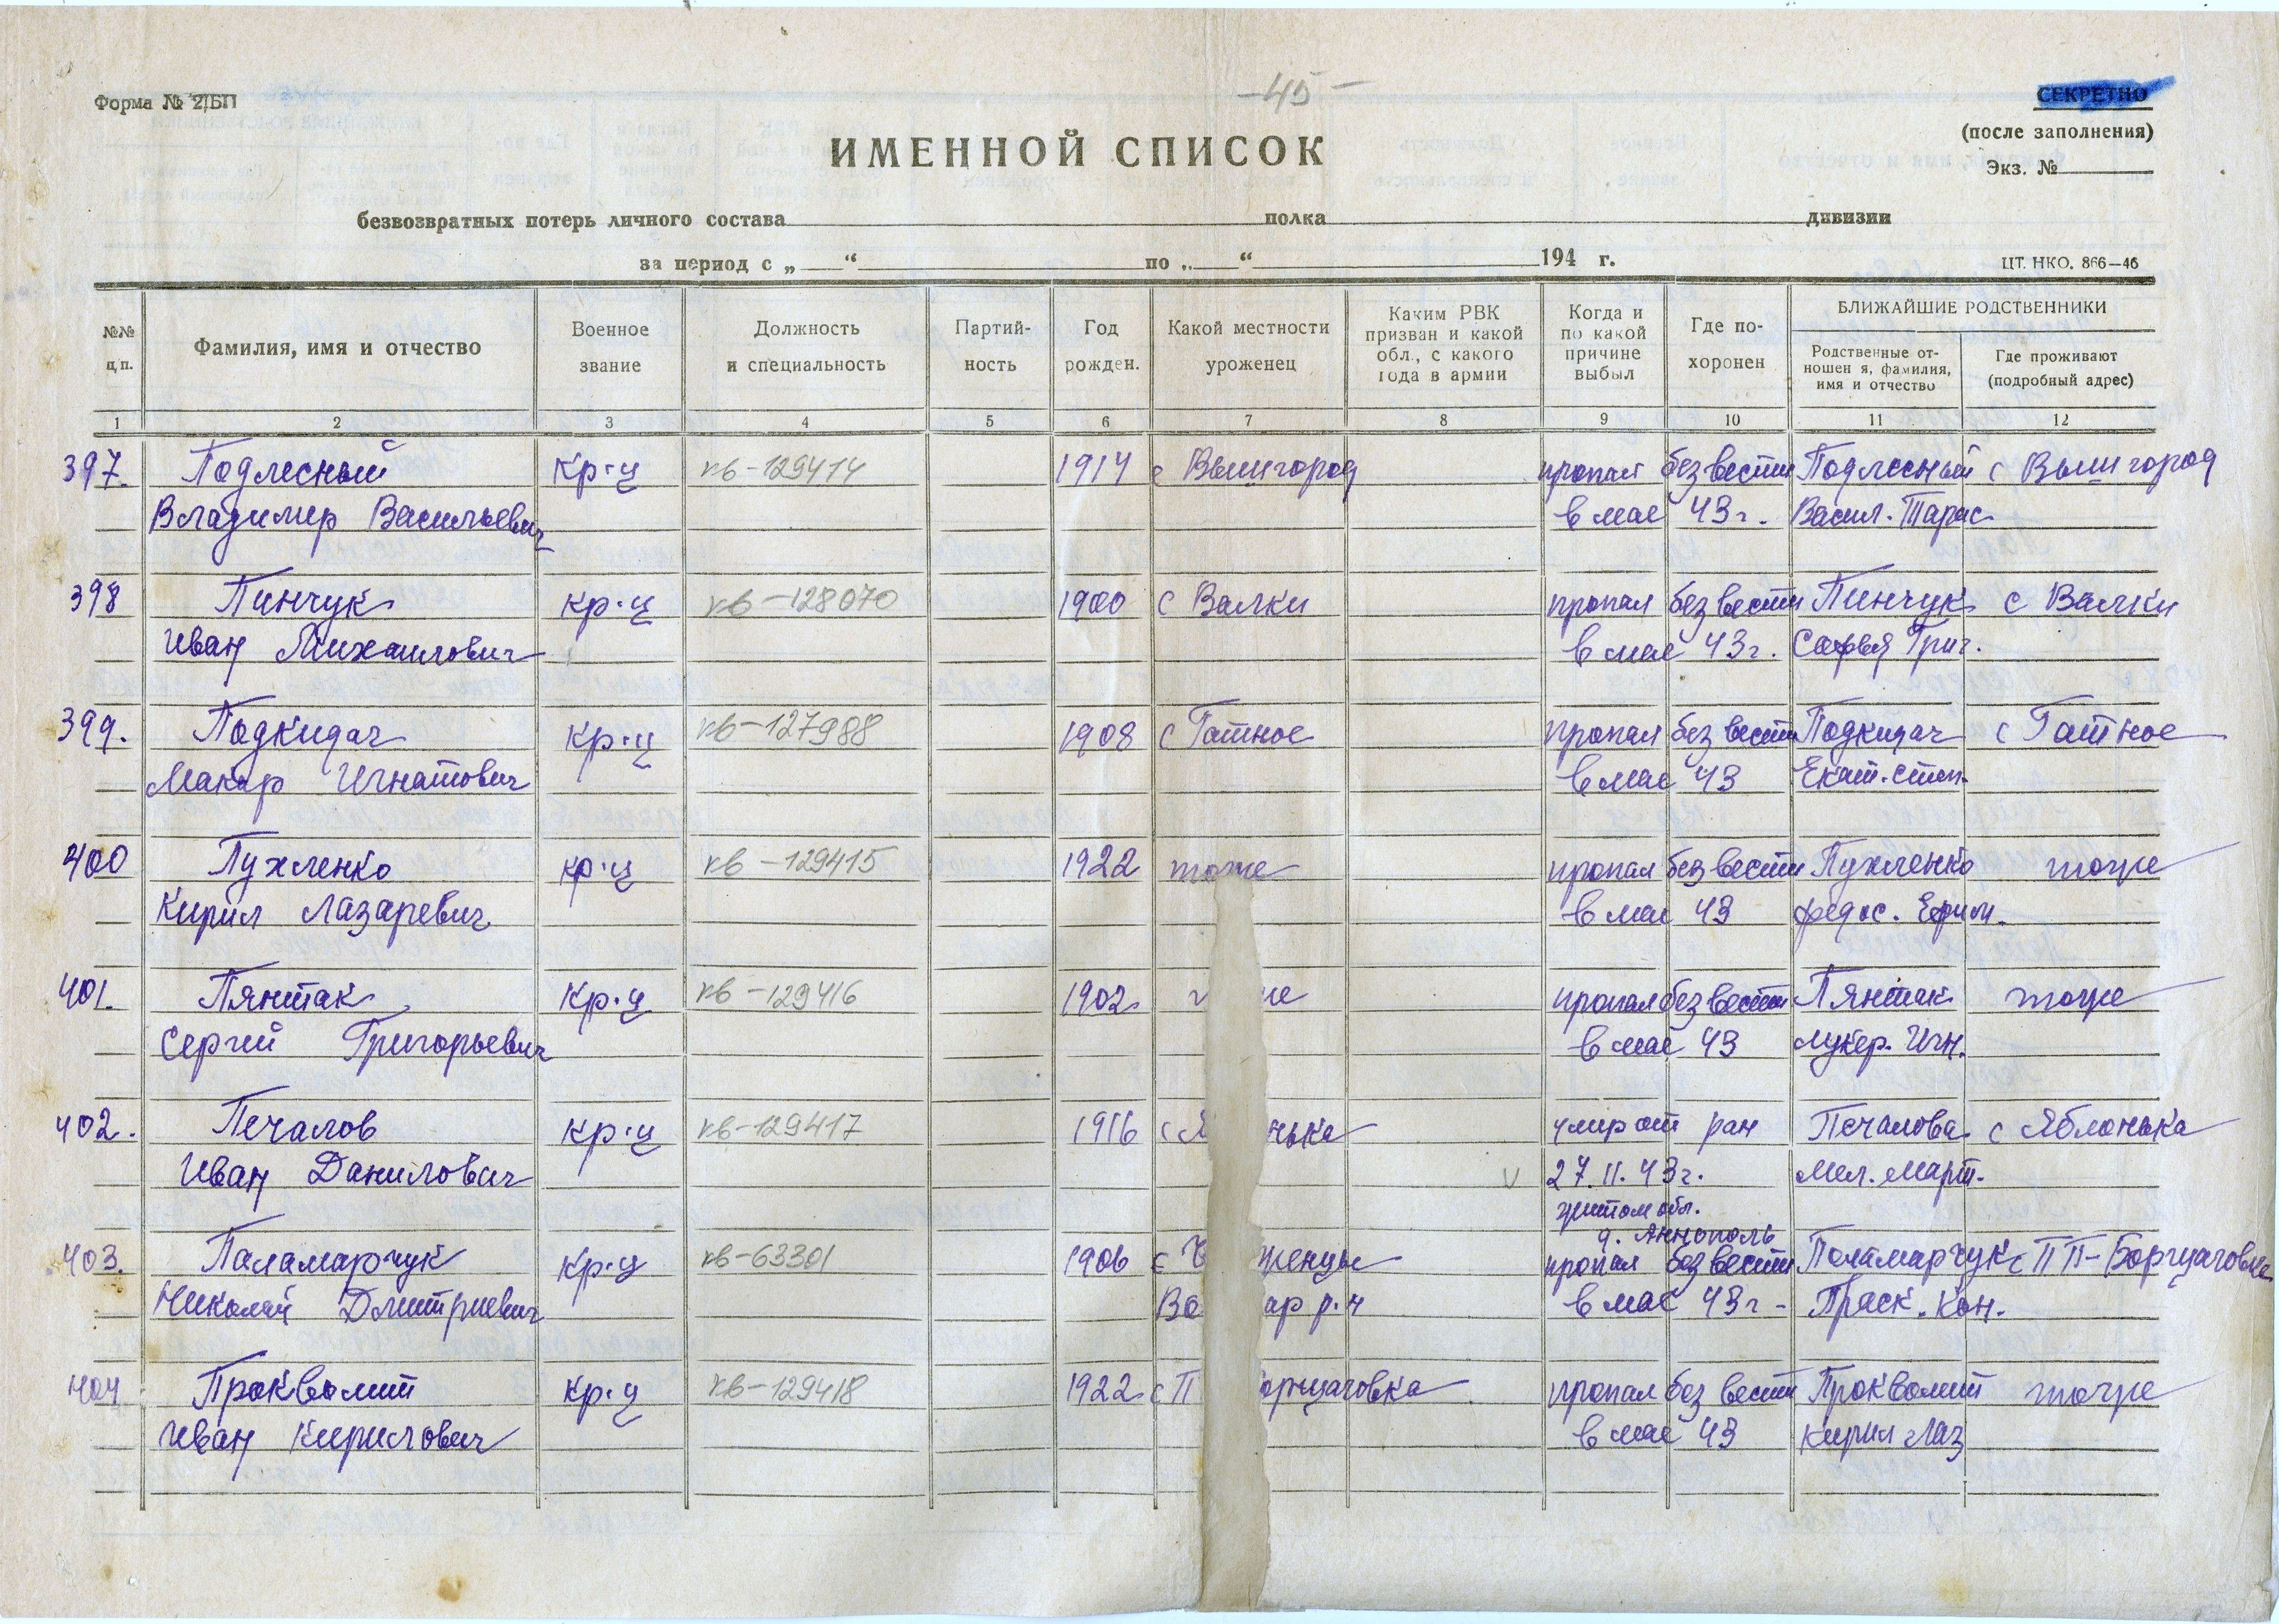 -45-
Форма № 2/БП
СЕКРЕТНО
(после заполнения)
Экз. №
ИМЕННОЙ СПИСОК
безвозвратных потерь личного состава полка дивизии
за период с „ “ по „ “ 194 г.
ЦТ. НКО. 866—46
№№ п.п. Фамилия, имя и отчество Военное звание Должность и специальность Партий-ность Год рожден. Какой местности уроженец Каким РВК призван и какой обл., с какого года в армии Когда и по какой причине выбыл Где по-хоронен БЛИЖАЙШИЕ РОДСТВЕННИКИ
Родственные от-ношен я, фамилия, имя и отчество Где проживают (подробный адрес)
1 2 3 4 5 6 7 8 9 10 11 12
397. Подлесный кр-ц кв-129414 1914 с Вышгород пропал без вести Подлесный с Вышгород
Владимир Васильевич в мае 43г. Васил. Тарас
398 Пинчук кр-ц кв-128070 1900 с Валки пропал без вести Пинчук с Валки
Иван Михаилович в мае 43г. Софья Григ.
399. Подкидач кр-ц кв-127988 1908 с Гатное пропал без вести Подкидач с Гатное
Макар Игнатович в мае 43 Екат. Степ.
400 Пухленко кр-ц кв-129415 1922 тоже пропал без вести Пухленко тоже
Кирил Лазаревич в мае 43 Федос. Ефим.
401. Пянтак кр-ц кв-129416 1902 пропал без вести Пянтак тоже
Сергий Григорьевич в мае 43 Лукер. Игн.
402. Печалов кр-ц кв-129417 1916 с Я нька умир от ран Печалова с Яблонька
Иван Данилович v 27.11.43г. Мел. Март.
житом обл.
д. Аннополь
403. Паламарчук кр-ц кв-63301 1906 с женцы пропал без вести Паламарчук с ПП-Борщаговка
Николай Дмитриевич Во ар р-н в мае 43г- Праск. Кон.
404 Прокволит кр-ц кв-129418 1922 с П орщаговка пропал без вести Прокволит тоже
Иван Кирилович в мае 43 Кирил Лаз